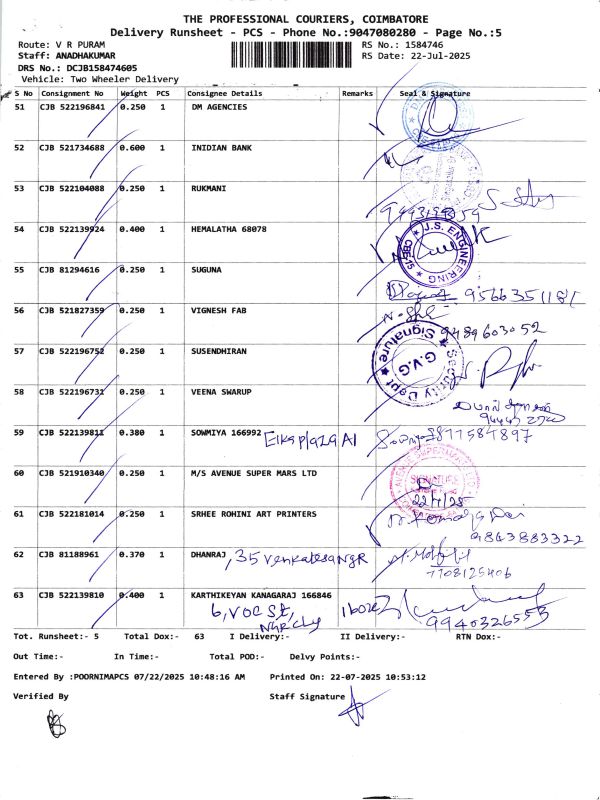 THE PROFESSIONAL COURIERS, COIMBATORE
Delivery Runsheet - PCS - Phone No.:9047080280 - Page No.:5
Route: V R PURAM
RS No.: 1584746
Staff: ANADHAKUMAR
RS Date: 22-Jul-2025
DRS No.: DCJB158474605
Vehicle: Two Wheeler Delivery
S No Consignment No Weight PCS Consignee Details Remarks Seal & Signature
51 CJB 522196841 0.250 1 DM AGENCIES
52 CJB 521734688 0.600 1 INIDIAN BANK
53 CJB 522104088 0.250 1 RUKMANI
54 CJB 522139924 0.400 1 HEMALATHA 68078
J.S. ENGINEERING
CBE-15
55 CJB 81294616 0.250 1 SUGUNA
9566351181
56 CJB 521827359 0.250 1 VIGNESH FAB
9489603052
57 CJB 522196752 0.250 1 SUSENDHIRAN
Security Dept
G.V.G
Signature
58 CJB 522196731 0.250 1 VEENA SWARUP
59 CJB 522139811 0.380 1 SOWMIYA 166992
60 CJB 521910340 0.250 1 M/S AVENUE SUPER MARS LTD
SIGNATURE
22/7/25
61 CJB 522181014 0.250 1 SRHEE ROHINI ART PRINTERS
9843883322
62 CJB 81188961 0.370 1 DHANRAJ , 35 Venkatesa NGR
7708125406
63 CJB 522139810 0.400 1 KARTHIKEYAN KANAGARAJ 166846
6, VOC St,
9940326553
Tot. Runsheet:- 5 Total Dox:- 63 I Delivery:- II Delivery:- RTN Dox:-
Out Time:- In Time:- Total POD:- Delvy Points:-
Entered By :POORNIMAPCS 07/22/2025 10:48:16 AM Printed On: 22-07-2025 10:53:12
Verified By Staff Signature